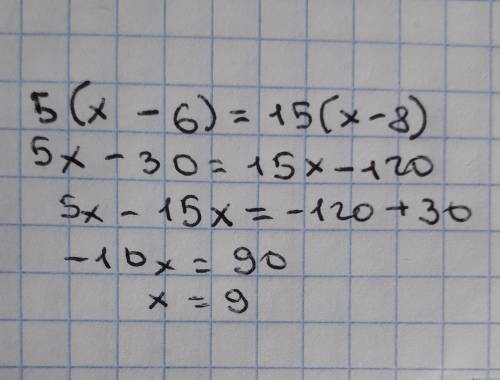 5(x - 6) = 15(x - 8)
5x - 30 = 15x - 120
5x - 15x = -120 + 30
-10x = 90
x = 9